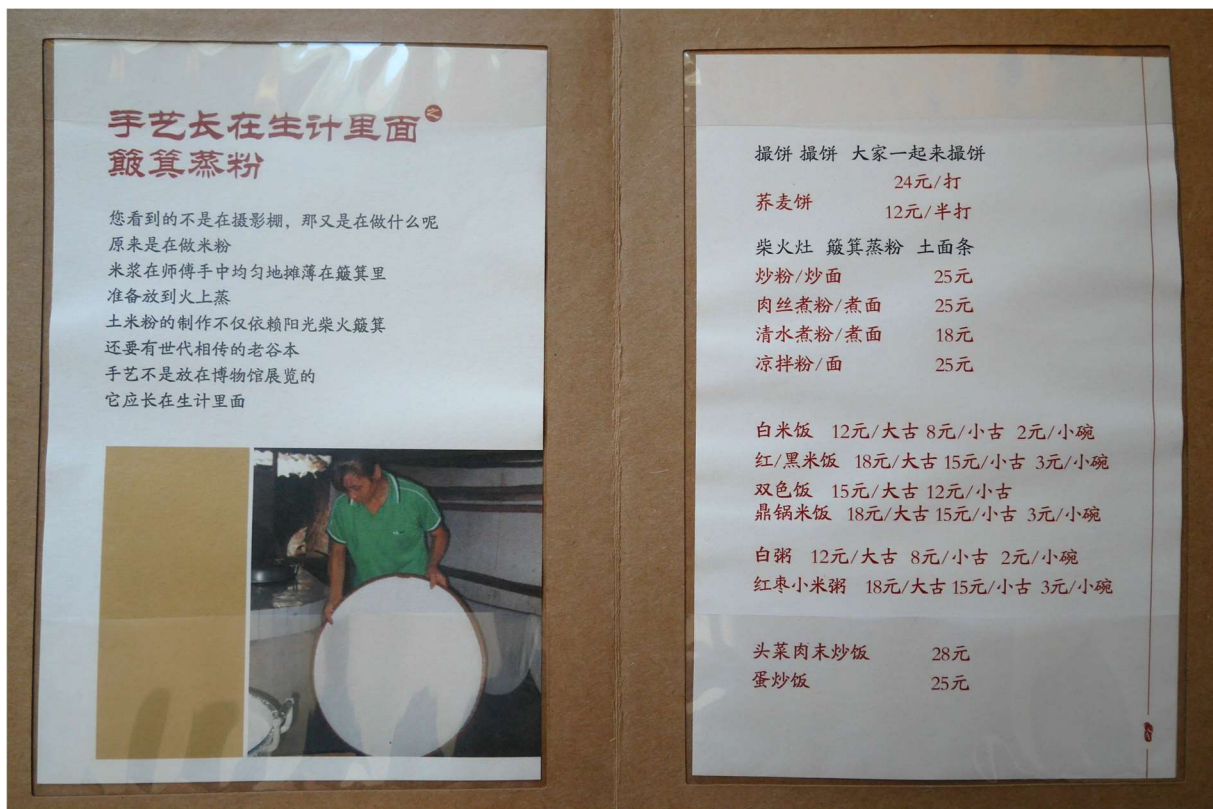 手艺长在生计里面之
簸箕蒸粉
您看到的不是在摄影棚，那又是在做什么呢
原来是在做米粉
米浆在师傅手中均匀地摊薄在簸箕里
准备放到火上蒸
土米粉的制作不仅依赖阳光柴火簸箕
还要有世代相传的老谷本
手艺不是放在博物馆展览的
它应长在生计里面
撮饼 撮饼 大家一起来撮饼
荞麦饼 24元/打
12元/半打
柴火灶 簸箕蒸粉 土面条
炒粉/炒面 25元
肉丝煮粉/煮面 25元
清水煮粉/煮面 18元
凉拌粉/面 25元
白米饭 12元/大古 8元/小古 2元/小碗
红/黑米饭 18元/大古 15元/小古 3元/小碗
双色饭 15元/大古 12元/小古
鼎锅米饭 18元/大古 15元/小古 3元/小碗
白粥 12元/大古 8元/小古 2元/小碗
红枣小米粥 18元/大古 15元/小古 3元/小碗
头菜肉末炒饭 28元
蛋炒饭 25元